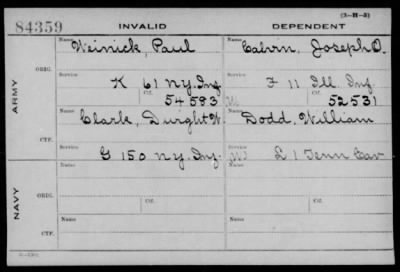 (3-H-3)
84359 INVALID DEPENDENT
Name Weinick, Paul Name Calvin, Joseph O.
ARMY
ORIG.
Service K 61 N.Y. Inf. Service F 11 Ill. Inf.
Ctf. 54583 Ctf. 52531
Name Clark, Durght W. Name Dodd, William
CTF.
Service G 150 N.Y. Inf. (W) L 1 Tenn Cav
NAVY
ORIG.
Name Name
Service Ctf. Service Ctf.
CTF.
Name Name
Service Service